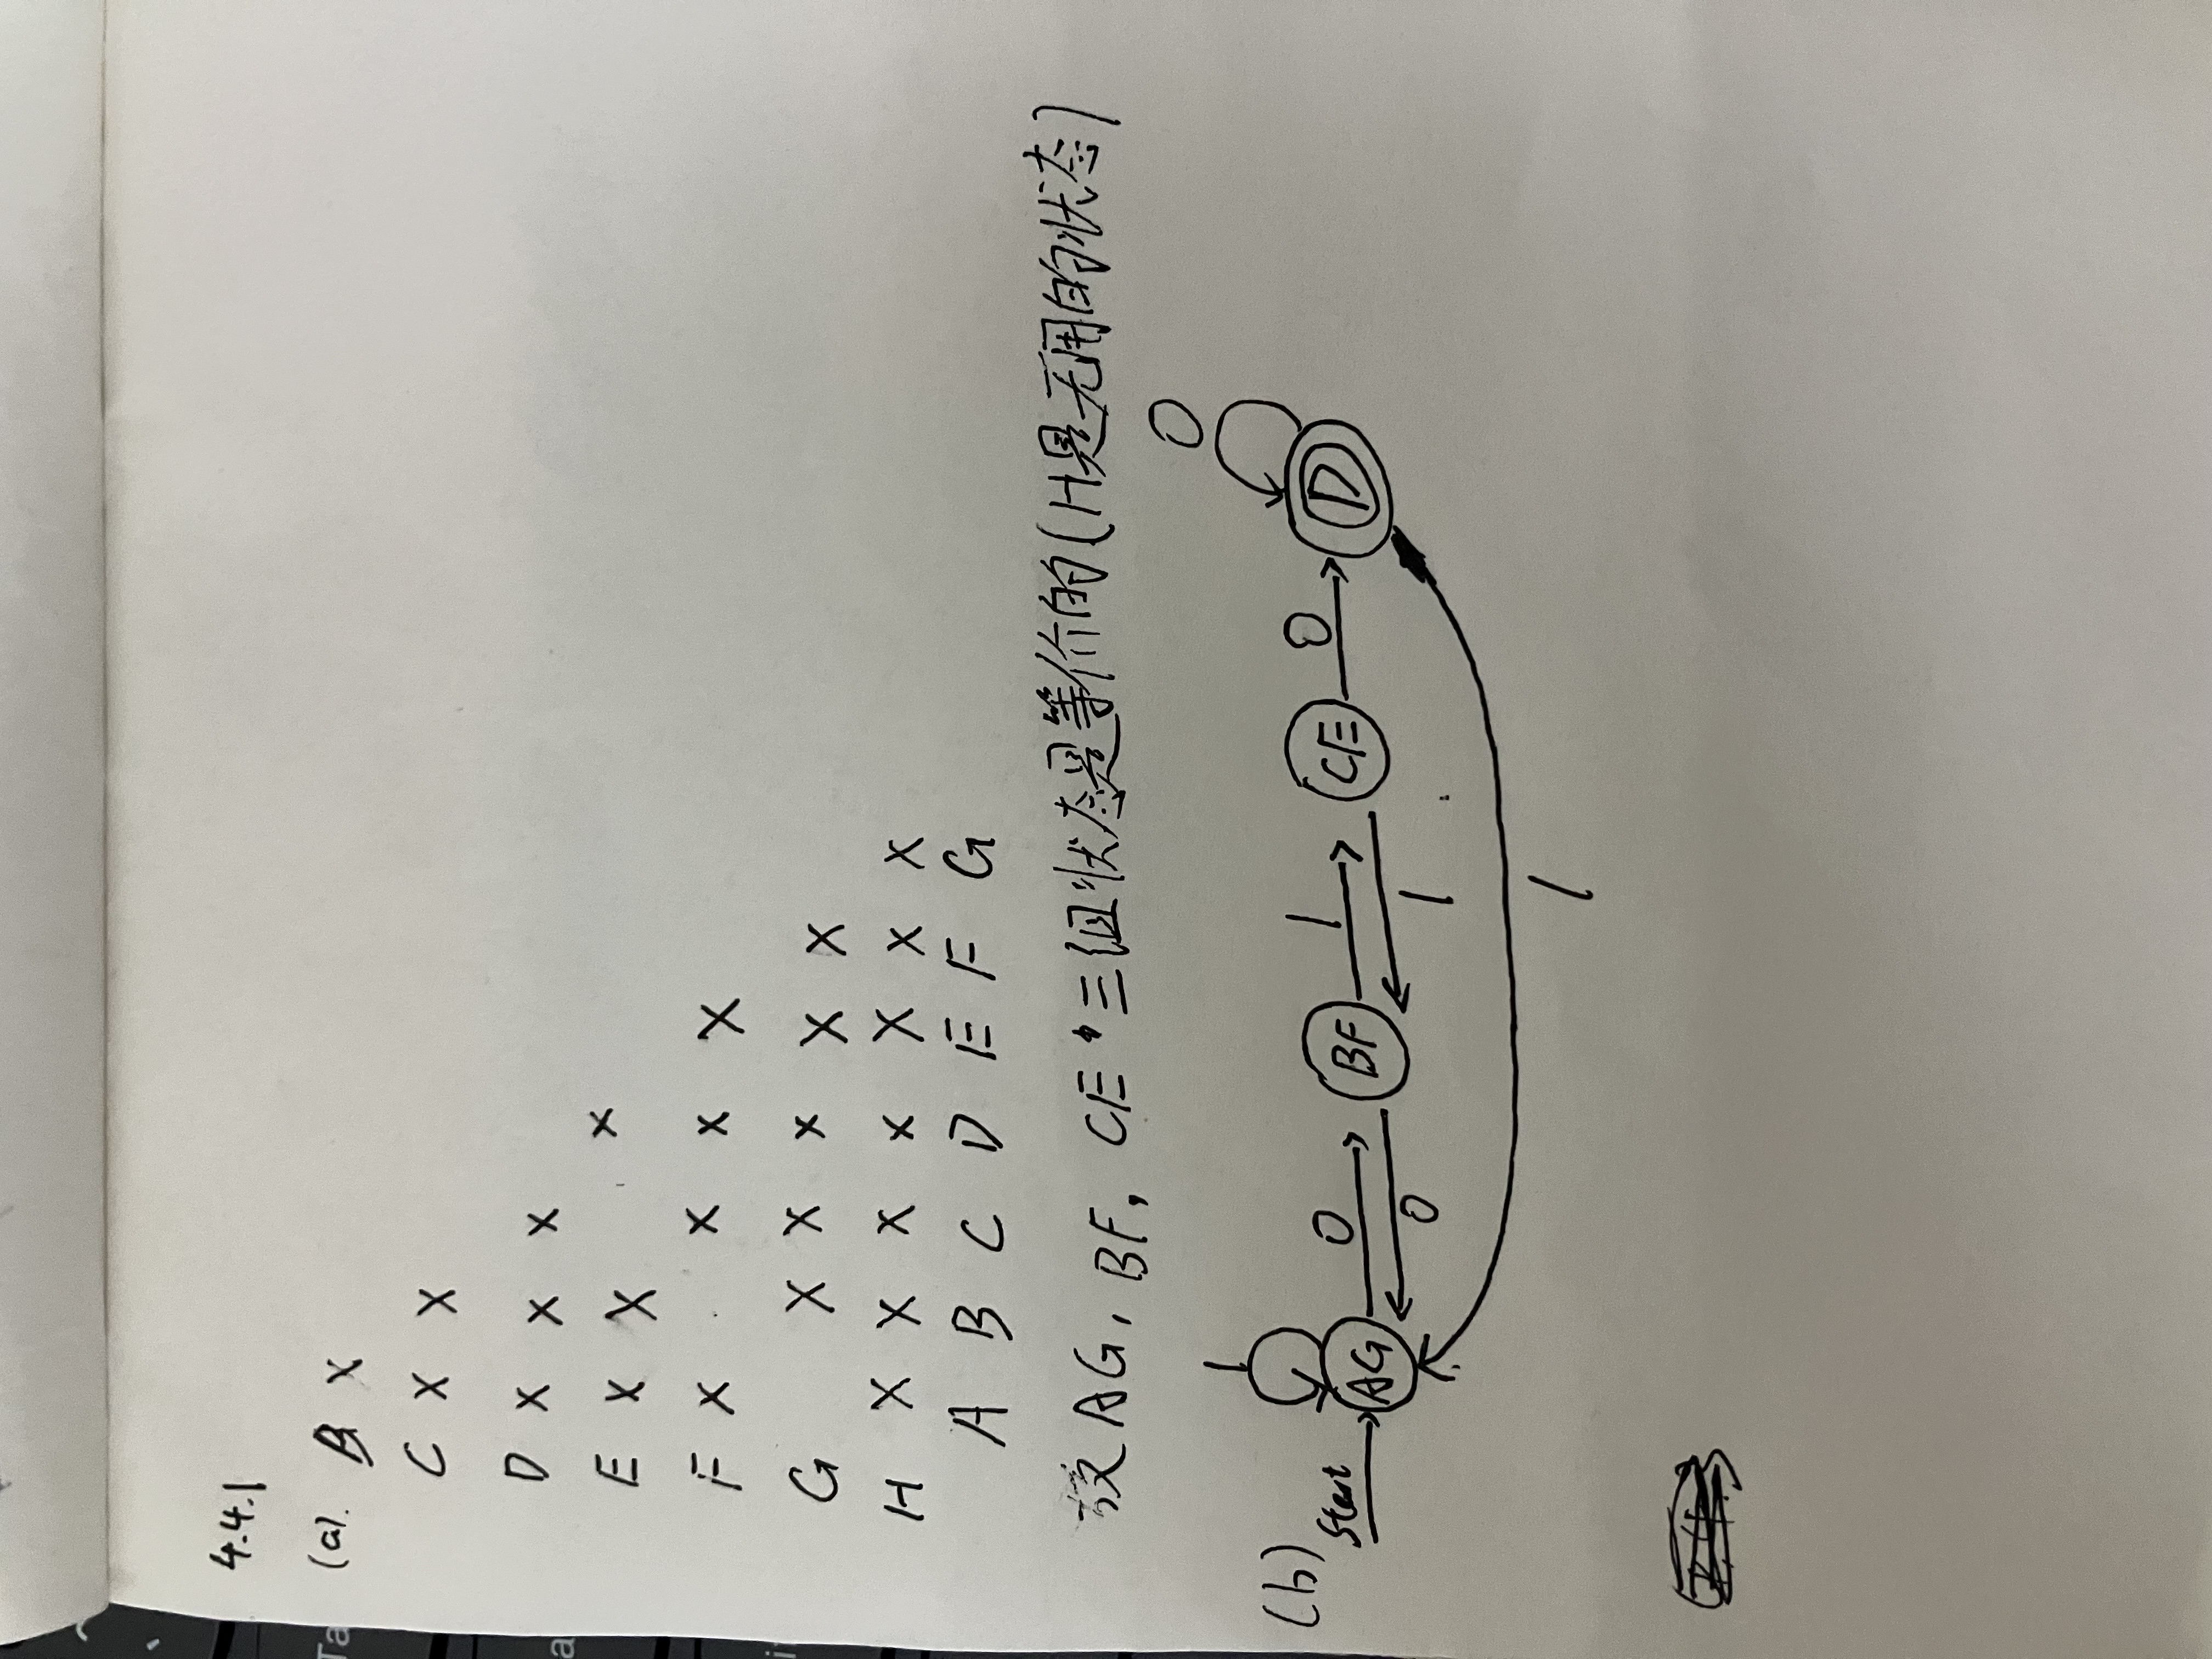 4.4.1
(a). B X
C X X
D X X X
E X X X
F X X X X
G X X X X X
H X X X X X X X
A B C D E F G
故 AG, BF, CE 三组状态是等价的(H是无用的状态)
0
1
(b) Start AG 0 BF 1 CE 0 D
0 1
1